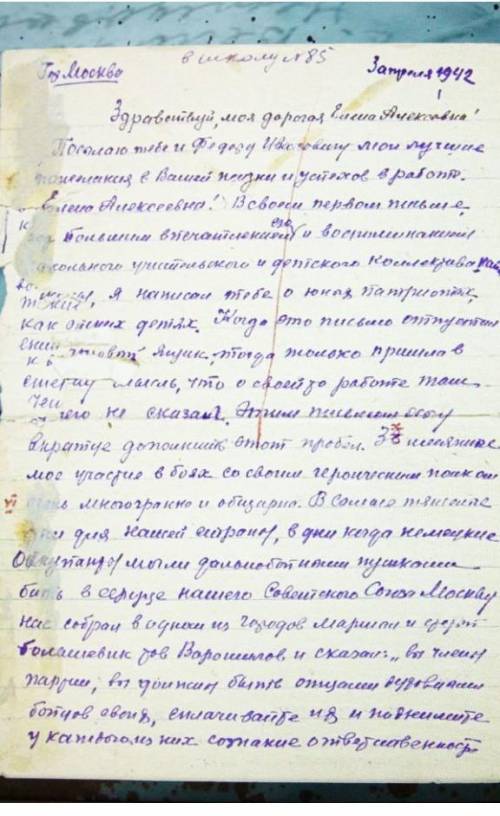 в школу №85
Гор Москва
3 апреля 1942
Здравствуй, моя дорогая Елена Алексеевна!
Посылаю тебе и Федору Ивановичу мои лучшие
пожелания в Вашей жизни и успехов в работе.
Елена Алексеевна! В своем первом письме,
большим впечатлением и воспоминаний
школьного учительского и детского коллектива
я написал тебе о юных патриотах,
как о своих детях. Когда это письмо опустил
ящик, тогда только пришла в
мысль, что о своей то работе там
чего не сказал. Этим письмом хочу
вкратце дополнить этот пробел. 3х месячное
мое участие в боях со своим героическим полком
очень многогранно и обширно. В самые тяжелые
дни для нашей страны, в дни когда немецкие
оккупанты могли дальнобойными пушками
бить в сердце нашего Советского Союза Москву
нас собрал в одном из городов маршал и
большевик тов Ворошилов и сказал: „вы члены
партии, вы должны быть отцами
бойцов своих, сплачивайте их и поднимите
у каждого из них сознание ответственности